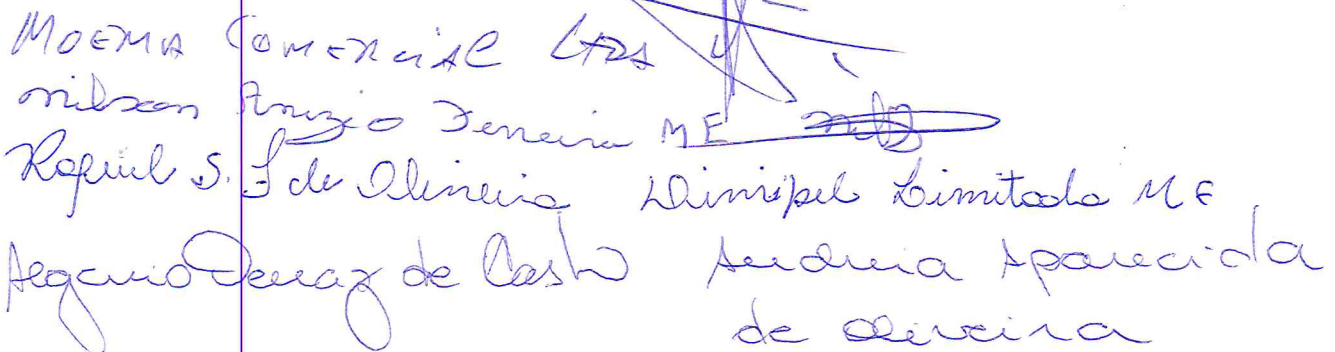 MOEMA COMERCIAL LTDA
Nilson Anizio Ferreira ME
Raquel S. S de Oliveira Dinipel Limitada ME
de Castro Andreia Aparecida
de Oliveira